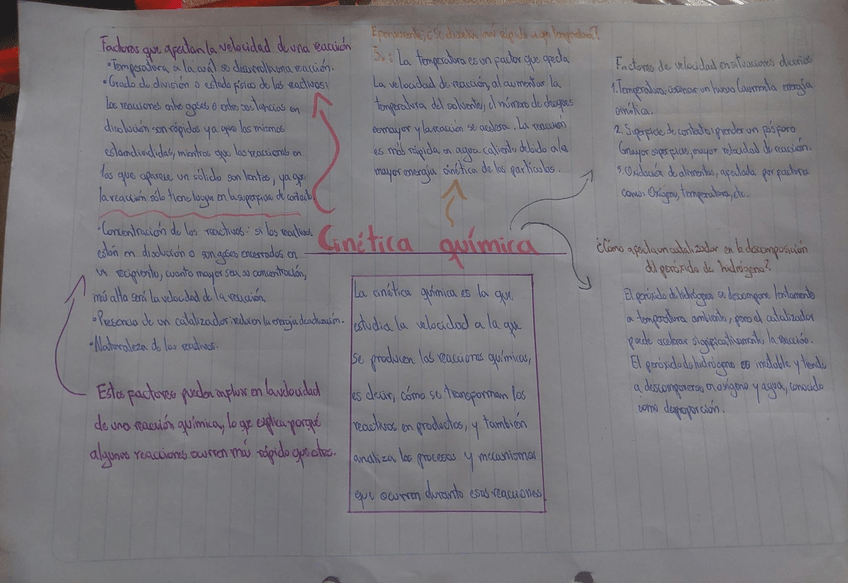 Factores que afectan la velocidad de una reacción
•Temperatura a la cuál se desarrolla una reacción.
•Grado de división o estado físico de los reactivos:
las reacciones entre gases o entre sustancias en
disolución son rápidas ya que las mismas
están divididas, mientras que las reacciones en
las que aparece un sólido son lentas, ya que
la reacción sólo tiene lugar en la superficie de contacto
•Concentración de los reactivos: si los reactivos
están en disolución o son gases encerrados en
un recipiente, cuanto mayor sea su concentración,
más alta será la velocidad de la reacción.
•Presencia de un catalizador: reducen la energía de activación.
•Naturaleza de los reactivos.
Estos factores pueden influir en la velocidad
de una reacción química, lo que explica porqué
algunas reacciones ocurren más rápido que otras.
se disuelve más rápido a que temperatura?
La temperatura es un factor que afecta
la velocidad de reacción, al aumentar la
temperatura del solvente, el número de choques
es mayor y la reacción se acelera. La reacción
es más rápida en agua caliente debido a la
mayor energía cinética de las partículas.
Cinética química
La cinética química es la que
estudia la velocidad a la que
se producen las reacciones químicas,
es decir, cómo se transforman los
reactivos en productos, y también
analiza los procesos y mecanismos
que ocurren durante esas reacciones
Factores de velocidad en situaciones diarias
1. Temperatura: cocinar un huevo (aumenta energía
cinética.
2. Superficie de contacto: prender un fósforo
(mayor superficie, mayor velocidad de reacción.
3. Oxidación de alimentos, afectada por factores
como: Oxígeno, temperatura, etc.
¿Cómo afecta un catalizador en la descomposición
del peróxido de hidrógeno?
El peróxido de hidrógeno se descompone lentamente
a temperatura ambiente, pero el catalizador
puede acelerar significativamente la reacción.
El peróxido de hidrógeno es inestable y tiende
a descomponerse en oxígeno y agua, conocido
como desproporción.